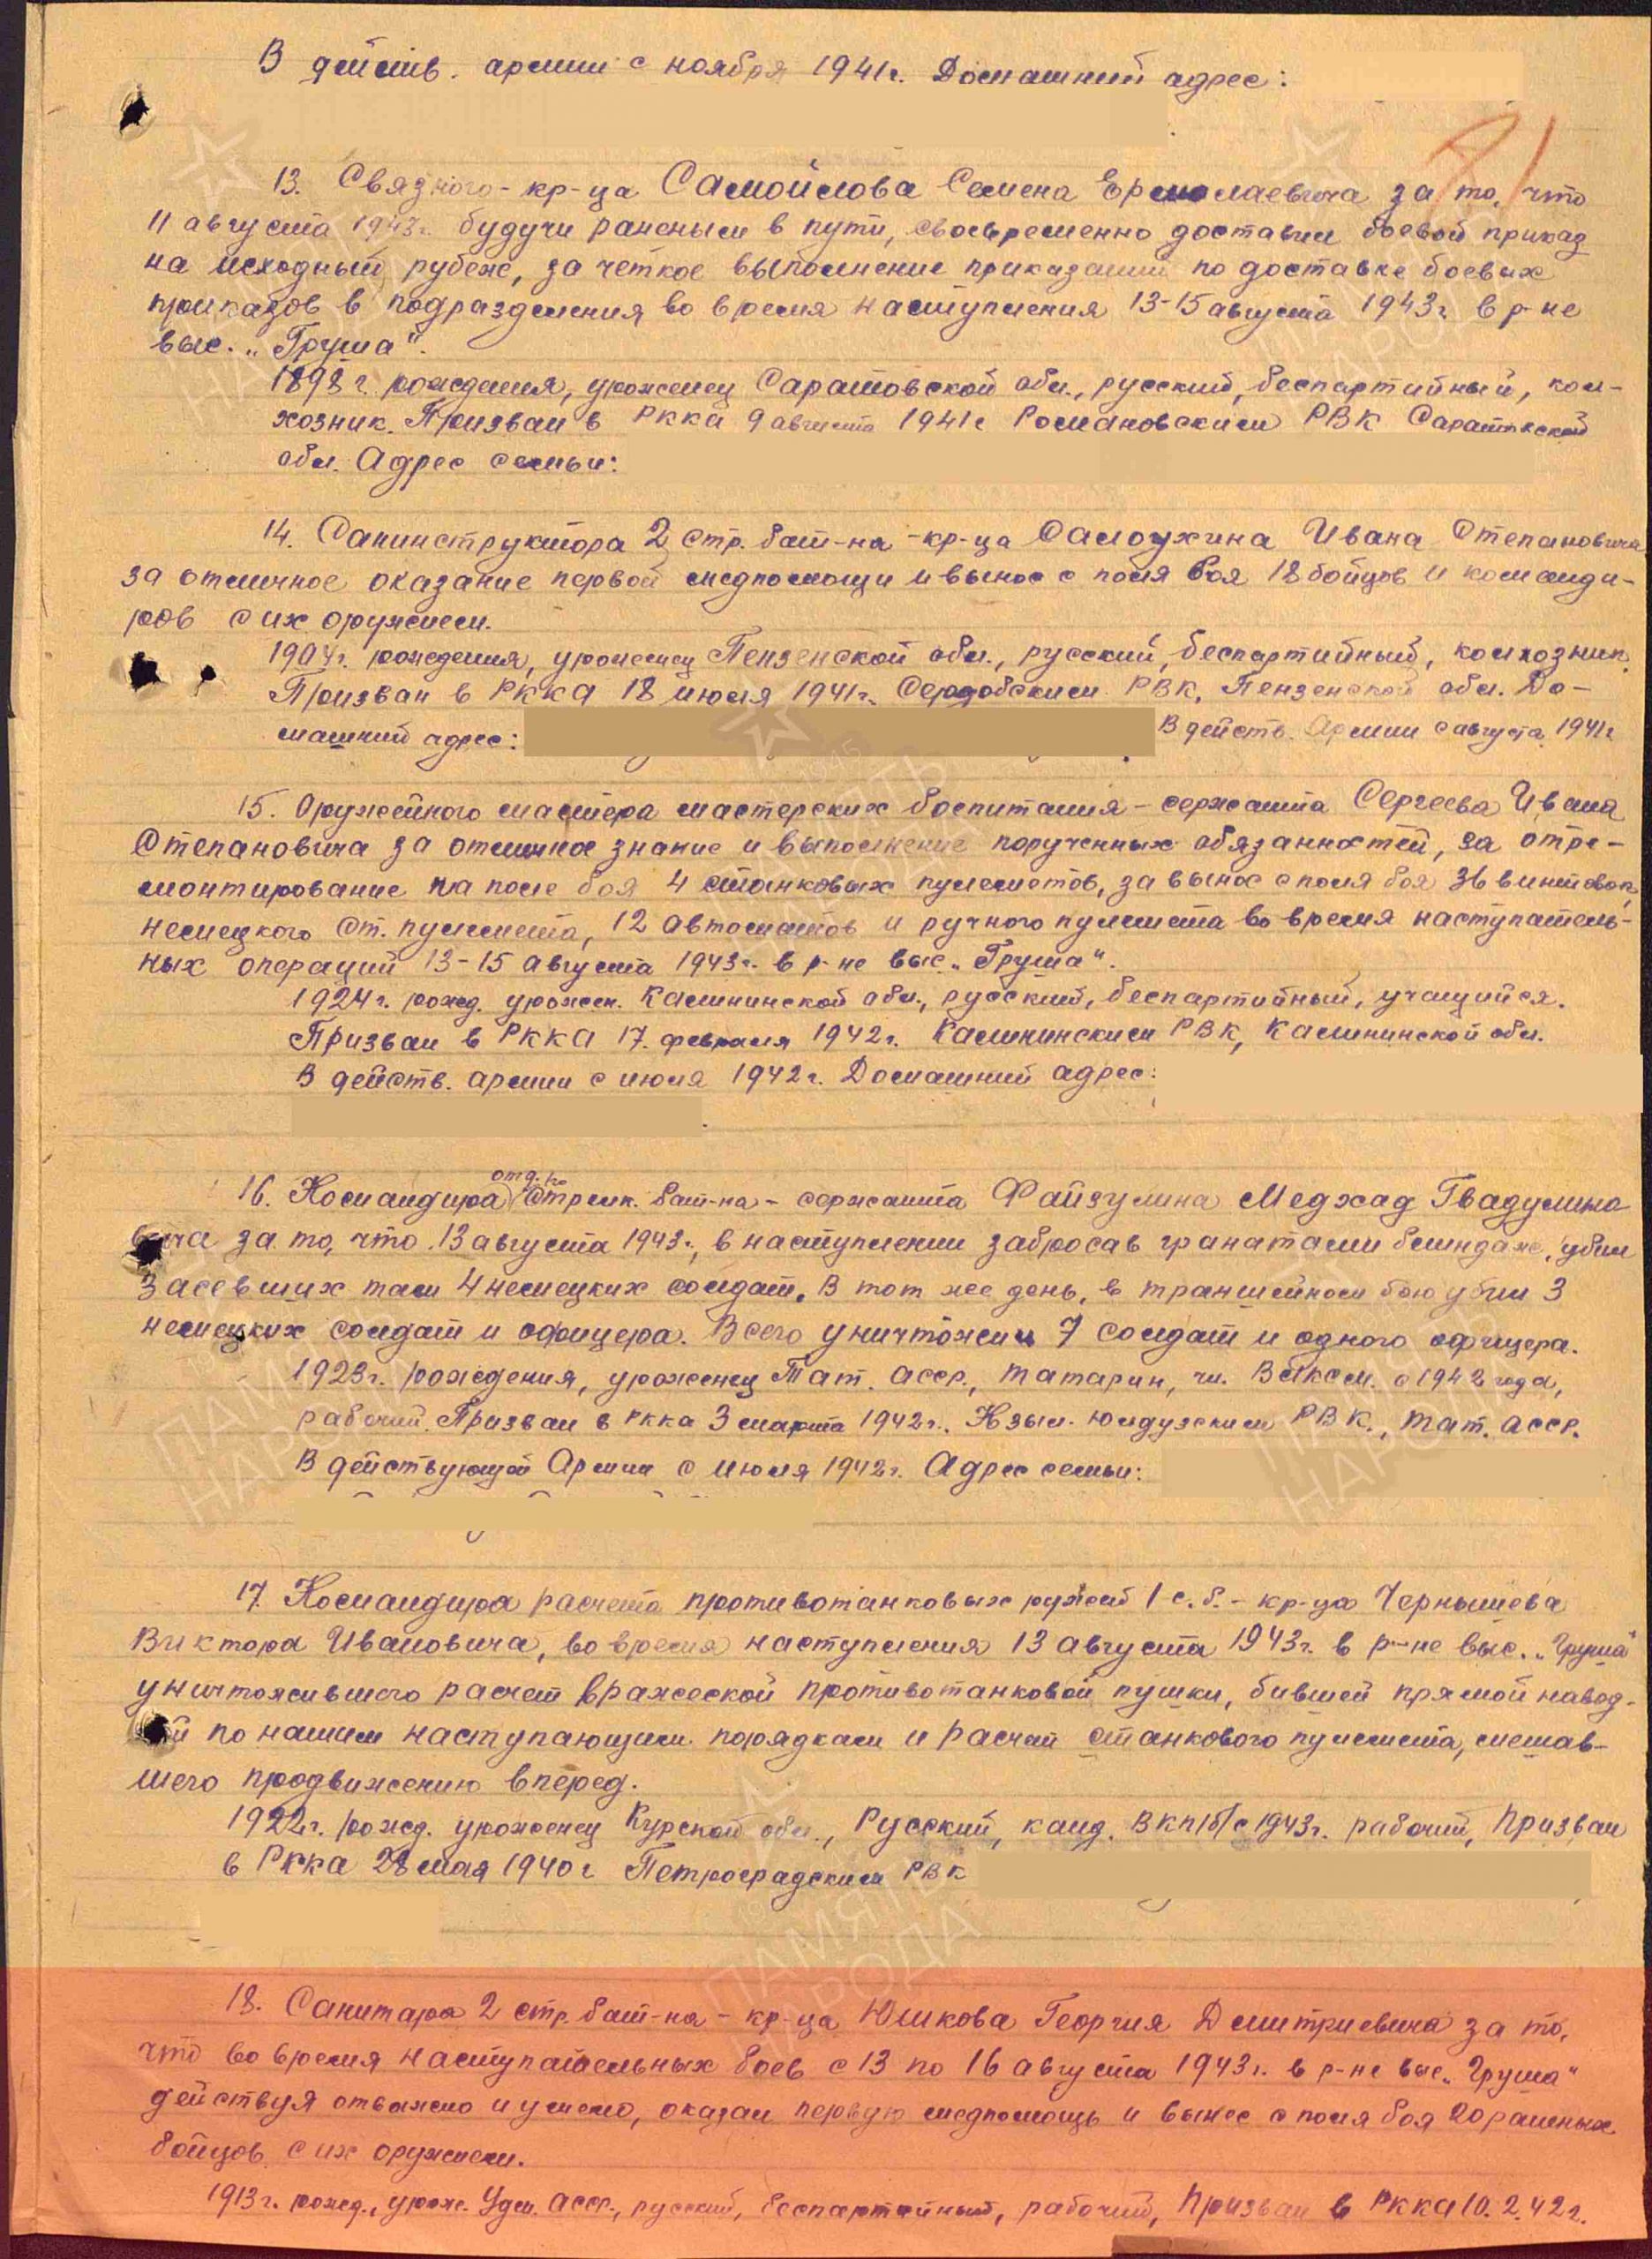 В действ. армии с ноября 1941г. Домашний адрес:
81
13. Связного - кр-ца Самойлова Семена Ермолаевича за то, что
11 августа 1943г. будучи раненым в пути, своевременно доставил боевой приказ
на исходный рубеж, за четкое выполнение приказаний по доставке боевых
приказов в подразделения во время наступления 13-15 августа 1943г. в р-не
выс. „Груша“.
1898г. рождения, уроженец Саратовской обл., русский, беспартийный, кол-
хозник. Призван в РККА 9 августа 1941г Романовским РВК Саратовской
обл. Адрес семьи:
14. Санинструктора 2 стр. бат-на - кр-ца Самоухина Ивана Степановича
за отличное оказание первой медпомощи и вынос с поля боя 18 бойцов и команди-
ров с их оружием.
1904г. рождения, уроженец Пензенской обл., русский, беспартийный, колхозник.
Призван в РККА 18 июля 1941г. Сердобским РВК, Пензенской обл. До-
машний адрес: В действ. Армии с августа 1941г
15. Оружейного мастера мастерских боепитания - сержанта Сергеева Ивана
Степановича за отличное знание и выполнение порученных обязанностей, за отре-
монтирование на поле боя 4 станковых пулеметов, за вынос с поля боя 36 винтовок,
немецкого ст. пулемета, 12 автоматов и ручного пулемета во время наступатель-
ных операций 13-15 августа 1943г. в р-не выс. „Груша“.
1924г. рожд. урожен. Калининской обл., русский, беспартийный, учащийся.
Призван в РККА 17. февраля 1942г. Калининским РВК, Калининской обл.
В действ. армии с июля 1942г. Домашний адрес:
16. Командира отд. стрелк. бат-на - сержанта Файзулина Меджад Гвадулино
вича за то, что 13 августа 1943г., в наступлении забросав гранатами блиндаж, убил
засевших там 4 немецких солдат. В тот же день, в траншейном бою убил 3
немецких солдат и офицера. Всего уничтожил 7 солдат и одного офицера.
1923г. рождения, уроженец Тат. АССР., татарин, чл. ВЛКСМ. с 1942 года,
рабочий. Призван в РККА 3 марта 1942г. Кзыл-Юлдузским РВК., Тат. АССР.
В действующей Армии с июля 1942г. Адрес семьи:
17. Командира расчета противотанковых ружей 1 с.б. - кр-ца Чернышева
Виктора Ивановича, во время наступления 13 августа 1943г. в р-не выс. „Груша“
уничтожившего расчет вражеской противотанковой пушки, бившей прямой навод-
кой по нашим наступающим порядкам и расчет станкового пулемета, мешав-
шего продвижению вперед.
1922г. рожд. уроженец Курской обл., Русский, канд. ВКП/б/ с 1943г. рабочий, Призван
в РККА 28 мая 1940г Петроградским РВК
18. Санитара 2 стр. бат-на - кр-ца Юшкова Георгия Дмитриевича за то,
что во время наступательных боев с 13 по 16 августа 1943г. в р-не выс. „Груша“
действуя отважно и умело, оказал первую медпомощь и вынес с поля боя 20 раненых
бойцов с их оружием.
1913г. рожд., урож. Удм. АССР., русский, беспартийный, рабочий, Призван в РККА 10.2.42г.
ПАМЯТЬ
НАРОДА